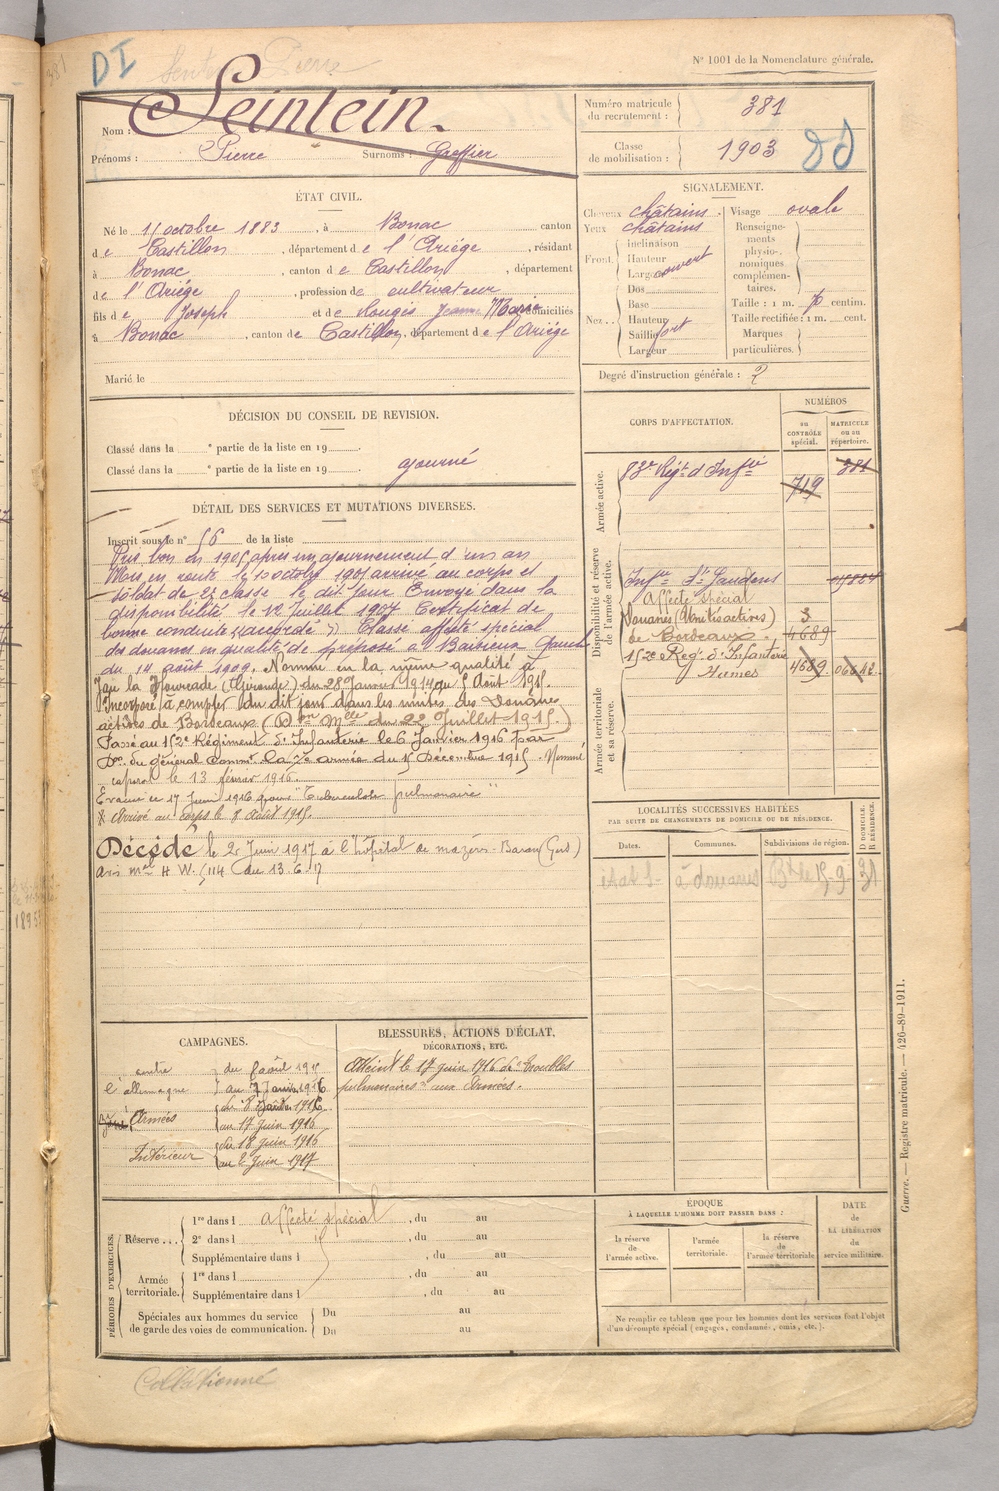 DI
N° 1001 de la Nomenclature générale.
Nom : Seintein.
Prénoms : Pierre Surnoms : Greffier
Numéro matricule du recrutement : 381
Classe de mobilisation : 1903
ÉTAT CIVIL.
Né le 1 octobre 1883, à Bonac canton
de Castillon, département de l'Ariége, résidant
à Bonac, canton de Castillon, département
de l'Ariége, profession de cultivateur
fils de Joseph et de Rougis Jeanne Marie domiciliés
à Bonac, canton de Castillon, département de l'Ariége
Marié le
SIGNALEMENT.
Cheveux châtains. Visage ovale
Yeux châtains
Renseignements physionomiques complémentaires.
Front. Inclinaison
Hauteur
Largeur couvert
Nez.. Dos
Base
Hauteur
Saillie fort
Largeur
Taille : 1 m. 70 centim.
Taille rectifiée : 1 m. cent.
Marques particulières.
Degré d'instruction générale : 2
DÉCISION DU CONSEIL DE REVISION.
Classé dans la e partie de la liste en 19
Classé dans la e partie de la liste en 19 ajourné
CORPS D'AFFECTATION.
NUMÉROS
au CONTRÔLE spécial.
MATRICULE ou au répertoire.
Armée active.
83e Régt d'Infie
719
381
Disponibilité et réserve de l'armée active.
Infie St Gaudens
Affecté spécial
Douanes (Unités actives) 3
de Bordeaux. 4689
152e Rég. d'Infanterie
Humes 4689
Armée territoriale et sa réserve.
DÉTAIL DES SERVICES ET MUTATIONS DIVERSES.
Inscrit sous le n° 56 de la liste
Pris bon en 1905 après un ajournement d'un an
Mis en route le 10 octobre 1905 arrivé au corps et
soldat de 2e classe le dit jour Envoyé dans la
disponibilité le 12 Juillet 1907 Certificat de
bonne conduite "accordé" Classé affecté spécial
des douanes en qualité de préposé à Baisieux Gauche
du 14 août 1909. Nommé en la même qualité à
Jau la Hourcade (Gironde) du 28 Janvier 1914 au 5 Août 1915.
Incorporé à compter du dit jour dans les unités des Douanes
actives de Bordeaux (Don Mlle du 22 Juillet 1915)
Passé au 152e Régiment d'Infanterie le 6 Janvier 1916 par
Don du général Commt la 7e armée du 15 Décembre 1915. Nommé
caporal le 13 février 1916.
Evacué le 17 Juin 1916 pour "Tuberculose pulmonaire"
X Arrivé au corps le 8 Août 1915.
Décédé le 2 Juin 1917 à l'hôpital de Mazères-Baron (Gers)
avis mel H W. 5114 du 13.6.17
LOCALITÉS SUCCESSIVES HABITÉES
PAR SUITE DE CHANGEMENTS DE DOMICILE OU DE RÉSIDENCE.
Dates. Communes. Subdivisions de région. D DOMICILE. R RÉSIDENCE.
à douanes
CAMPAGNES.
contre l'allemagne du 5 août 1915
au 7 Janvier 1916
Armées du 8 Janvier 1916
au 17 Juin 1916
Intérieur du 18 Juin 1916
au 2 Juin 1917
BLESSURES, ACTIONS D'ÉCLAT,
DÉCORATIONS, ETC.
Atteint le 17 juin 1916 de "troubles
pulmonaires" aux Armées.
PÉRIODES D'EXERCICES.
Réserve... 1re dans l affecté spécial, du au
2e dans l , du au
Supplémentaire dans l , du au
Armée territoriale. 1re dans l , du au
Supplémentaire dans l , du au
Spéciales aux hommes du service Du au
de garde des voies de communication. Du au
ÉPOQUE
À LAQUELLE L'HOMME DOIT PASSER DANS :
la réserve de l'armée active.
l'armée territoriale.
la réserve de l'armée territoriale
DATE de LA LIBÉRATION du service militaire.
Ne remplir ce tableau que pour les hommes dont les services font l'objet
d'un décompte spécial (engagés, condamnés, omis, etc.).
Guerre. — Registre matricule. — 426-89-1911.
Collationné